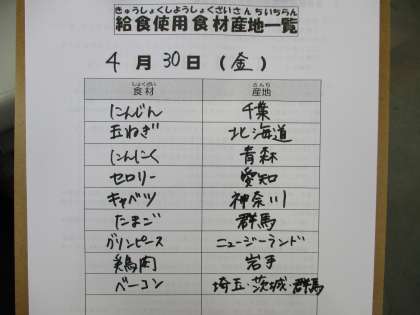 きゅうしょくしようしょくざいさんちいちらん
給食使用食材産地一覧
4月30日(金)
しょくざい さんち
食材 産地
にんじん 千葉
玉ねぎ 北海道
にんにく 青森
セロリー 愛知
キャベツ 神奈川
たまご 群馬
グリンピース ニュージーランド
鶏肉 岩手
ベーコン 埼玉・茨城・群馬